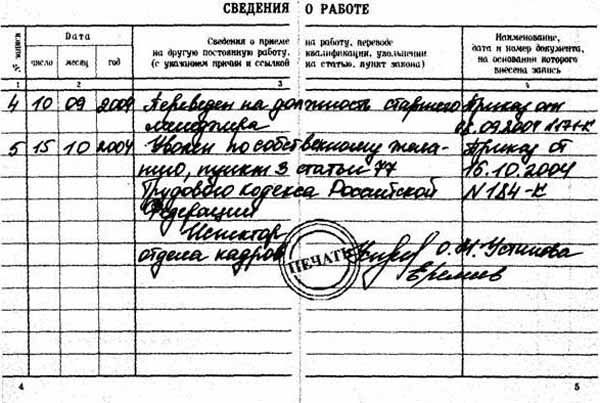 СВЕДЕНИЯ О РАБОТЕ
№ записи
Дата
число месяц год
Сведения о приеме на работу, переводе
на другую постоянную работу, квалификации, увольнении
(с указанием причин и ссылкой на статью, пункт закона)
Наименование,
дата и номер документа,
на основании которого
внесена запись
1 2 3 4
4 10 09 2004 Переведен на должность старшего Приказ от
менеджера 09.2004 N171-К
5 15 10 2004 Уволен по собственному жела- Приказ от
нию, пункт 3 статьи 77 15.10.2004
Трудового кодекса Российской N184-К
Федерации
Инспектор
отдела кадров ПЕЧАТЬ О.М. Устинова
Еремеев
4 5